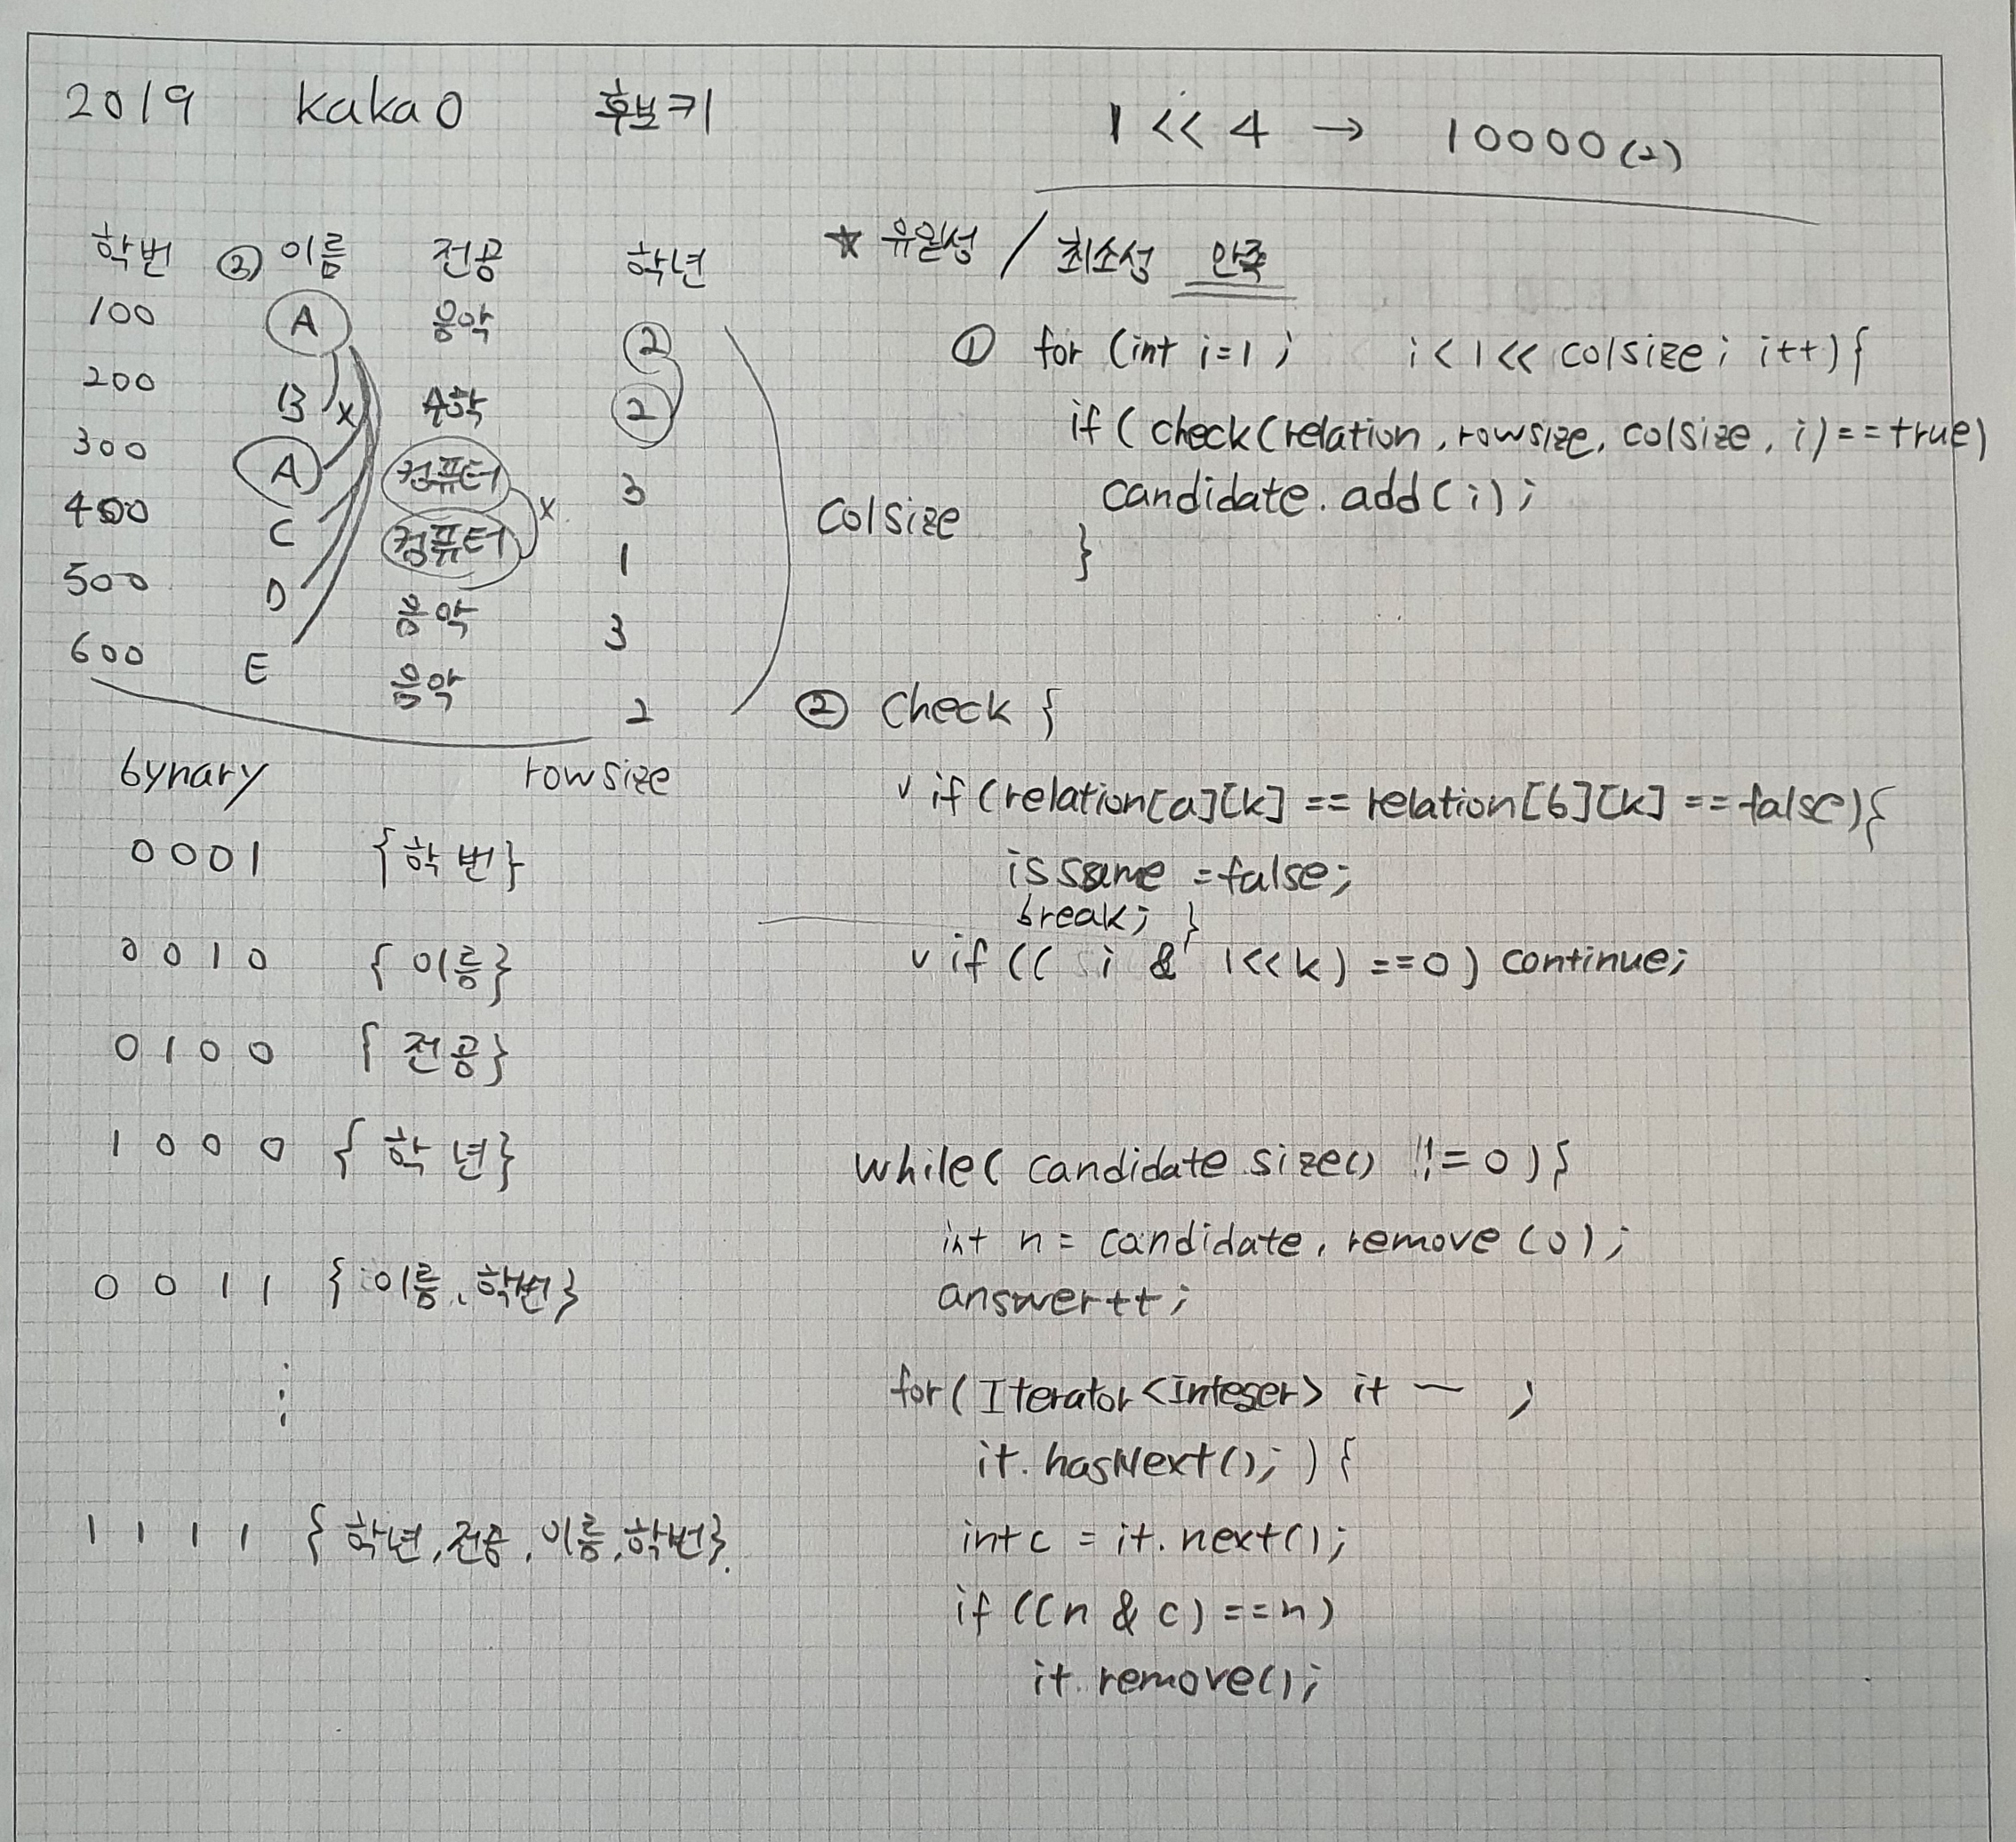 2019 kakao 후보키
1 << 4 → 10000(2)
★ 유일성 / 최소성 만족
학번 ② 이름 전공 학년
100 A 음악 2
200 B x 수학 2
300 A 컴퓨터 3
400 C 컴퓨터 x 1
500 D 음악 3
600 E 음악 2
colsize
bynary rowsize
0001 {학번}
0010 {이름}
0100 {전공}
1000 {학년}
0011 {이름, 학번}
⋮
1111 {학년, 전공, 이름, 학번}.
① for (int i=1; i<1<< colsize; i++){
if (check(relation, rowsize, colsize, i)==true)
candidate.add(i);
}
② check {
v if (relation[a][k] == relation[b][k] ==false){
issame =false;
break; }
v if (( i & 1<<k) ==0) continue;
while( candidate.size() !=0){
int n = candidate.remove(0);
answer++;
for( Iterator<Integer> it ~ ;
it.hasNext(); ) {
int c = it.next();
if ((n & c) ==n)
it.remove();